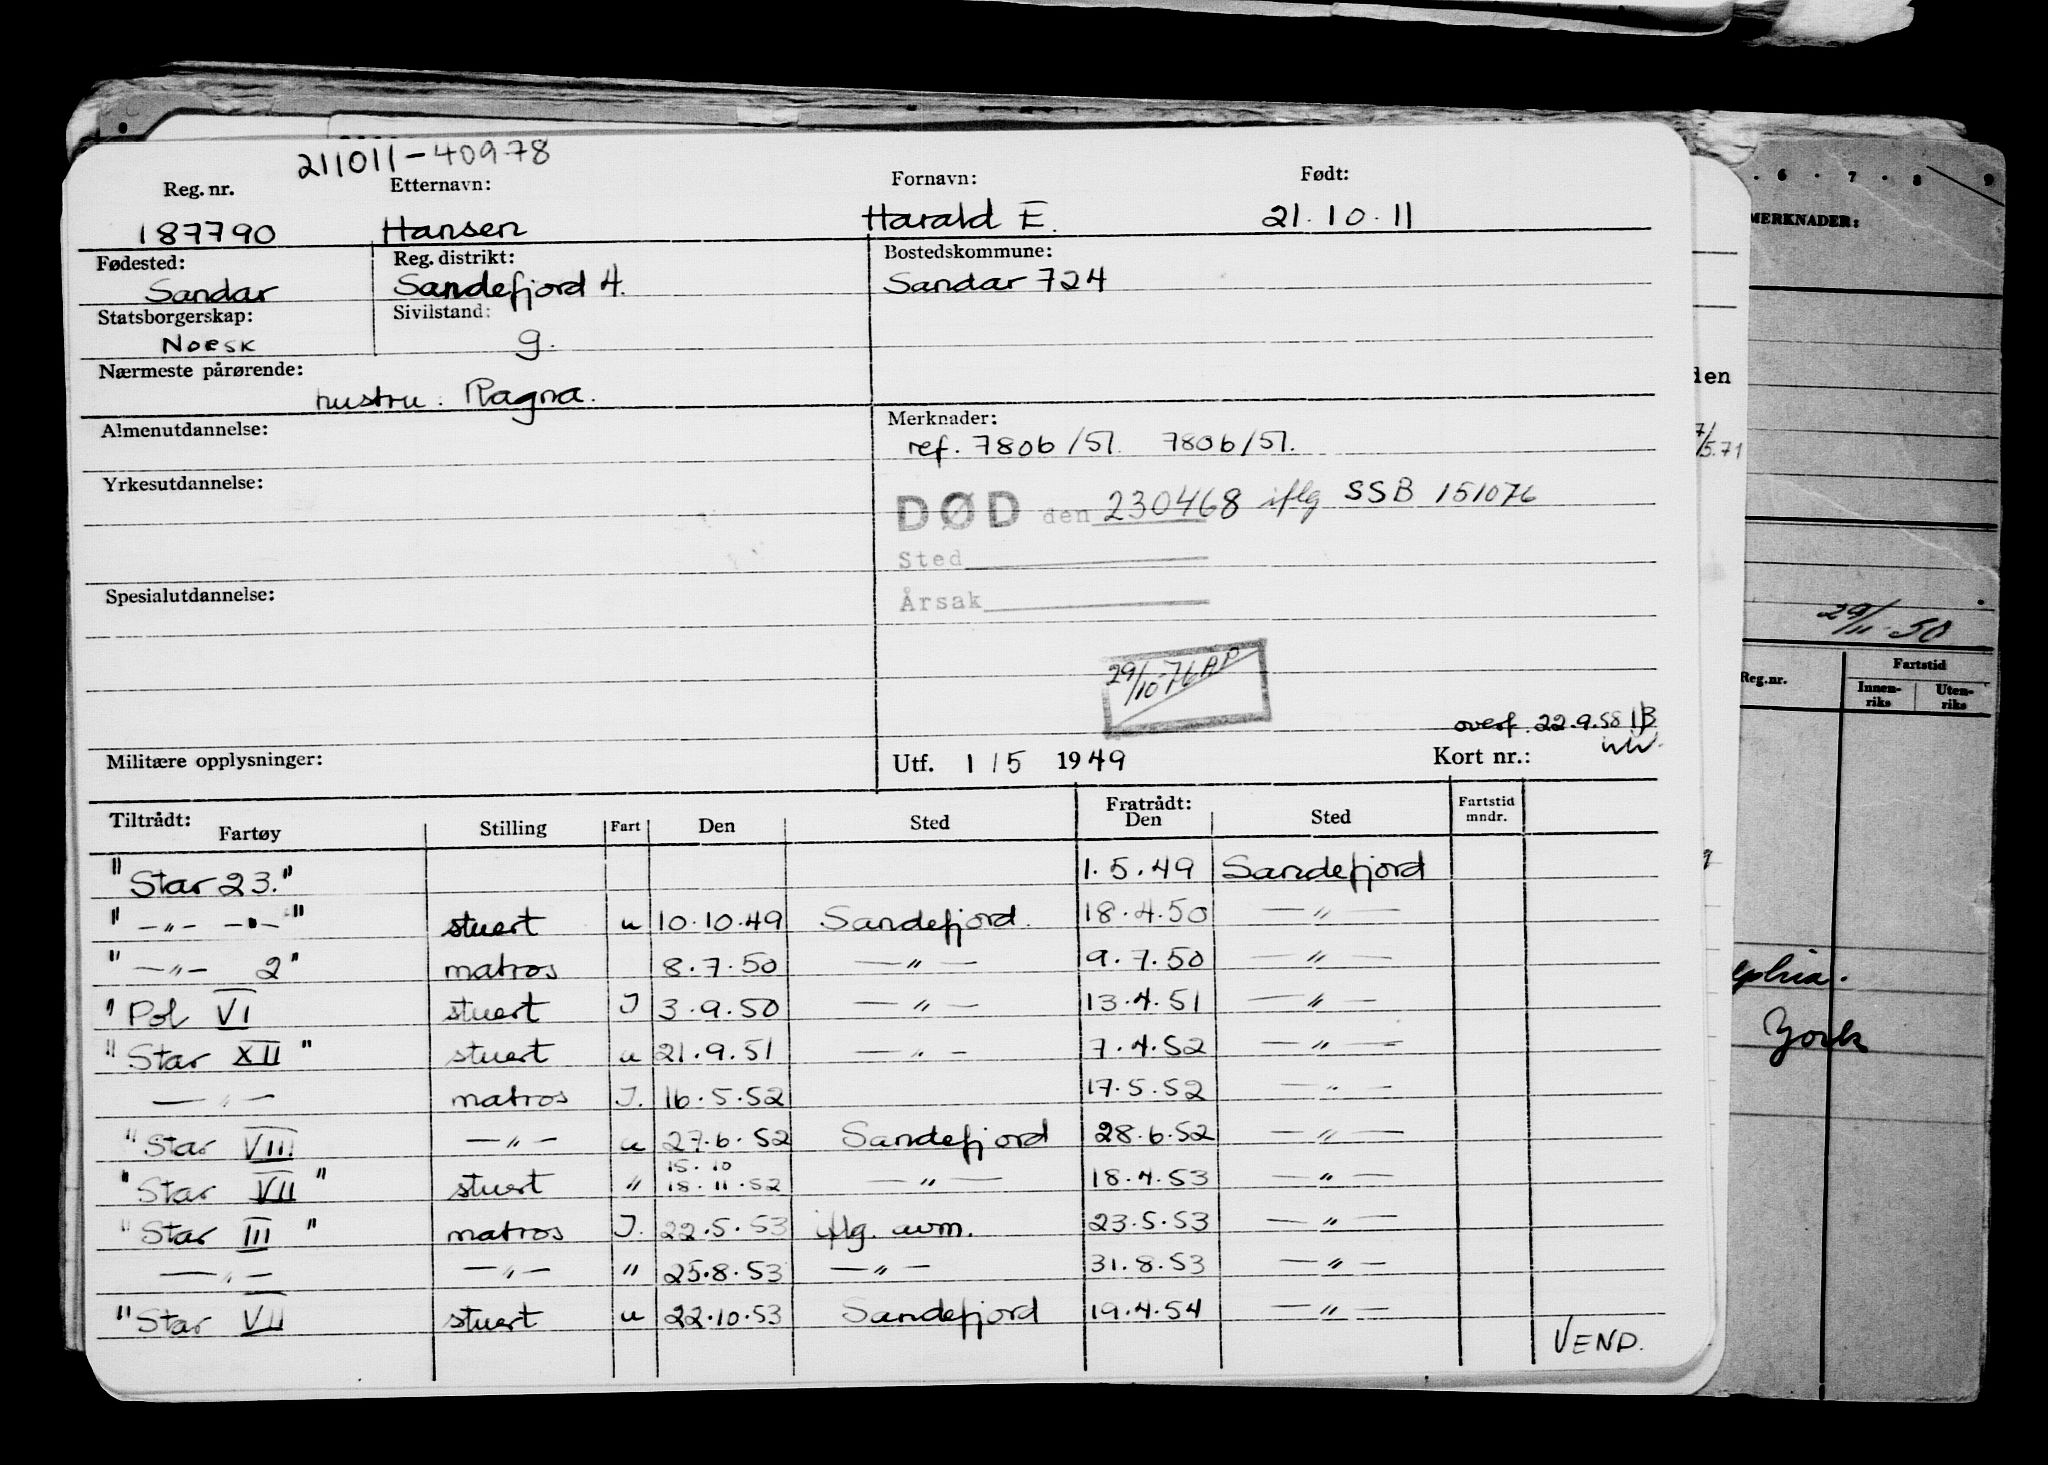 211011-40978
Reg. nr. Etternavn: Fornavn: Født:
187790 Hansen Harald E. 21.10.11
Fødested: Reg. distrikt: Bostedskommune:
Sandar Sandefjord 4. Sandar 724
Statsborgerskap: Sivilstand:
Norsk g.
Nærmeste pårørende:
hustru: Ragna.
Almenutdannelse: Merknader:
ref. 7806/51. 7806/51.
Yrkesutdannelse:
DØD den 230468 iflg SSB 151076
Sted
Årsak
Spesialutdannelse:
29/10-76 AP
overf. 22.9.58 IB
Militære opplysninger: Utf. 1/5 1949 Kort nr.:
Tiltrådt: Fartøy Stilling Fart Den Sted Fratrådt: Den Sted Fartstid mndr.
"Star 23." 1.5.49 Sandefjord
" -"- -"- " stuert u 10.10.49 Sandefjord. 18.4.50 -"-
" -"- 2" matros 8.7.50 -"- 9.7.50 -"-
" Pol VI stuert I 3.9.50 -"- 13.4.51 -"-
"Star XII" stuert u 21.9.51 -"- 7.4.52 -"-
-"- matros I. 16.5.52 17.5.52 -"-
"Star VIII -"- u 27.6.52 Sandefjord 28.6.52 -"-
15.10
"Star VII" stuert " 18.11.52 -"- 18.4.53 -"-
"Star III" matros I. 22.5.53 iflg. avm. 23.5.53 -"-
-"- -"- " 25.8.53 -"- 31.8.53 -"-
"Star VII stuert u 22.10.53 Sandefjord 19.4.54 -"-
VEND.
6 7 8 9
MERKNADER:
den
7/5.71
29/11-50
Reg.nr. Fartstid
Innen-riks Uten-riks
elphia.
York